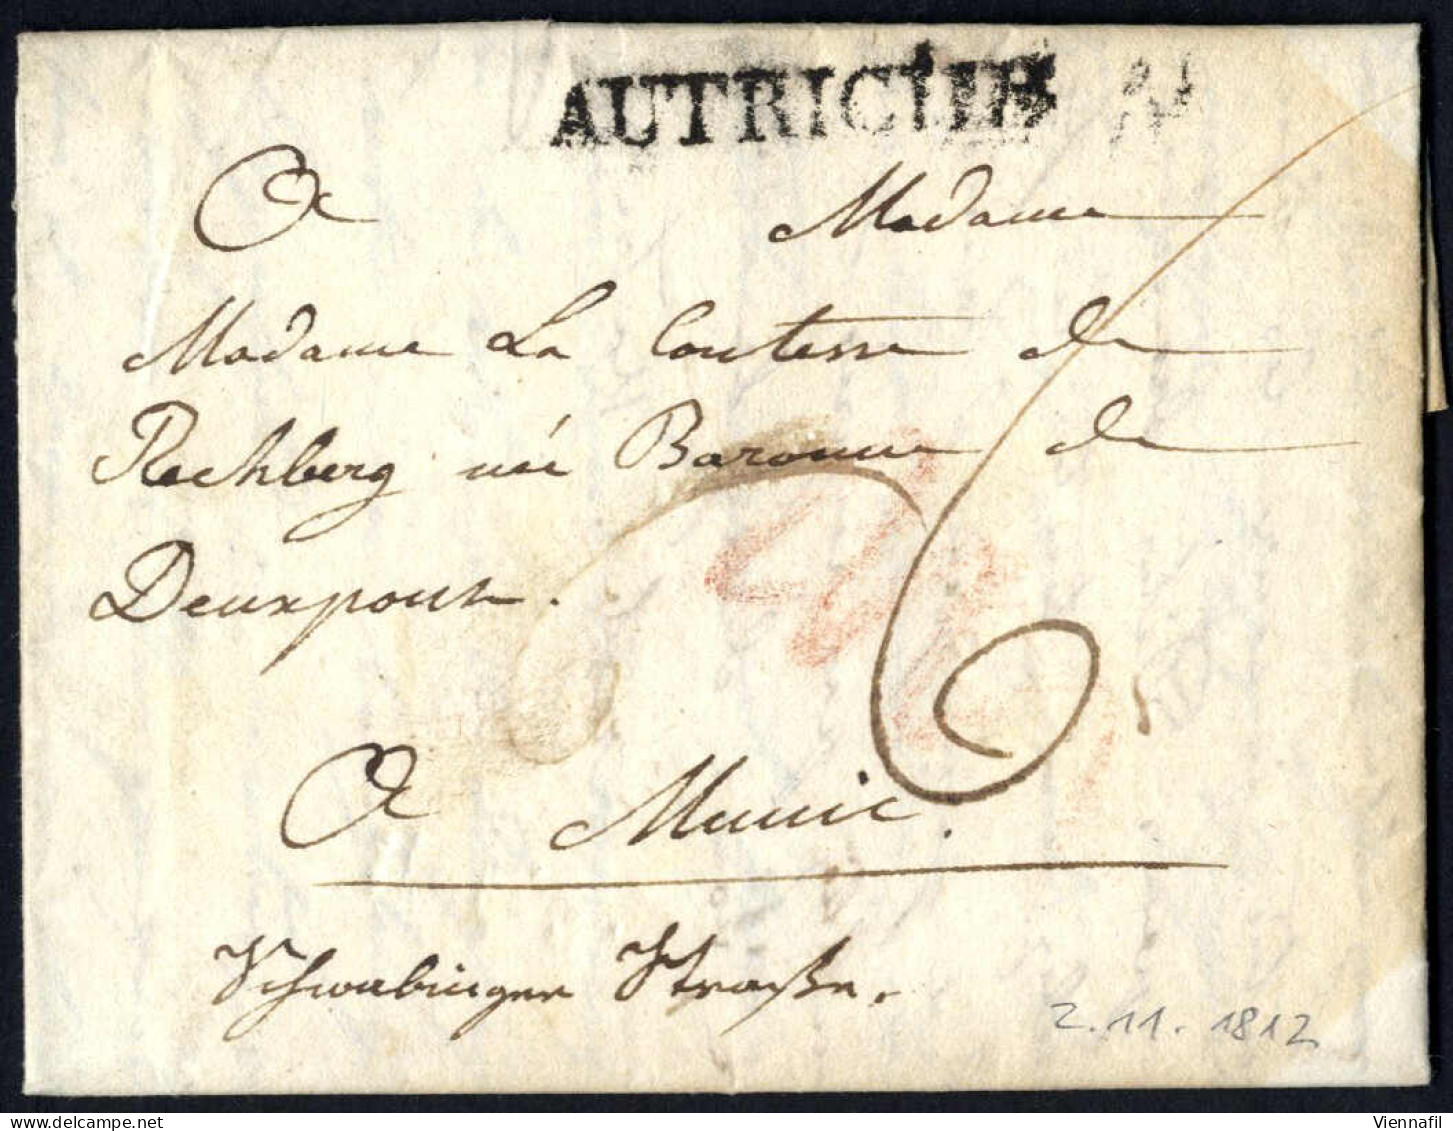 AUTRICHE
A Madame
Madame La Comtesse de
Rechberg née Baronne de
Deuxponts.
6
A Munic.
Schwabinger Straße.
2.11.1812
Viennafil